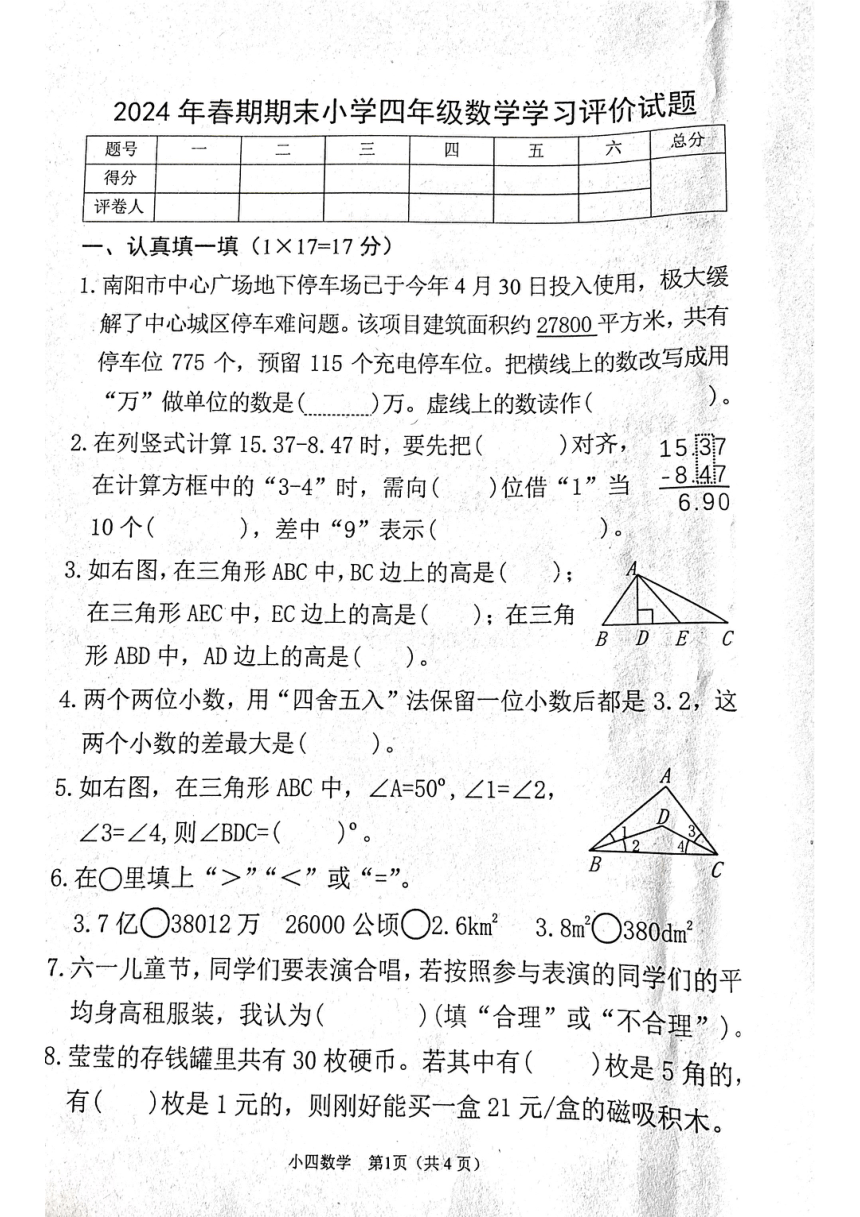 2024 年春期期末小学四年级数学学习评价试题
题号 一 二 三 四 五 六 总分
得分
评卷人
一、认真填一填（1×17=17 分）
1. 南阳市中心广场地下停车场已于今年 4 月 30 日投入使用，极大缓
解了中心城区停车难问题。该项目建筑面积约 27800 平方米，共有
停车位 775 个，预留 115 个充电停车位。把横线上的数改写成用
“万”做单位的数是(............)万。虚线上的数读作( )。
2. 在列竖式计算 15.37-8.47 时，要先把( )对齐，
在计算方框中的“3-4”时，需向( )位借“1”当
10 个( )，差中“9”表示( )。
15.37
-8.47
6.90
3. 如右图，在三角形 ABC 中，BC 边上的高是( )；
在三角形 AEC 中，EC 边上的高是( )；在三角
形 ABD 中，AD 边上的高是( )。
A
B D E C
4. 两个两位小数，用“四舍五入”法保留一位小数后都是 3.2，这
两个小数的差最大是( )。
5. 如右图，在三角形 ABC 中，∠A=50°，∠1=∠2，
∠3=∠4，则∠BDC=( )°。
A
D
1 3
2 4
B C
6. 在○里填上“>”“<”或“=”。
3.7 亿○38012 万 26000 公顷○2.6km² 3.8m²○380dm²
7. 六一儿童节，同学们要表演合唱，若按照参与表演的同学们的平
均身高租服装，我认为( )(填“合理”或“不合理”)。
8. 莹莹的存钱罐里共有 30 枚硬币。若其中有( )枚是 5 角的，
有( )枚是 1 元的，则刚好能买一盒 21 元/盒的磁吸积木。
小四数学 第1页（共 4 页）